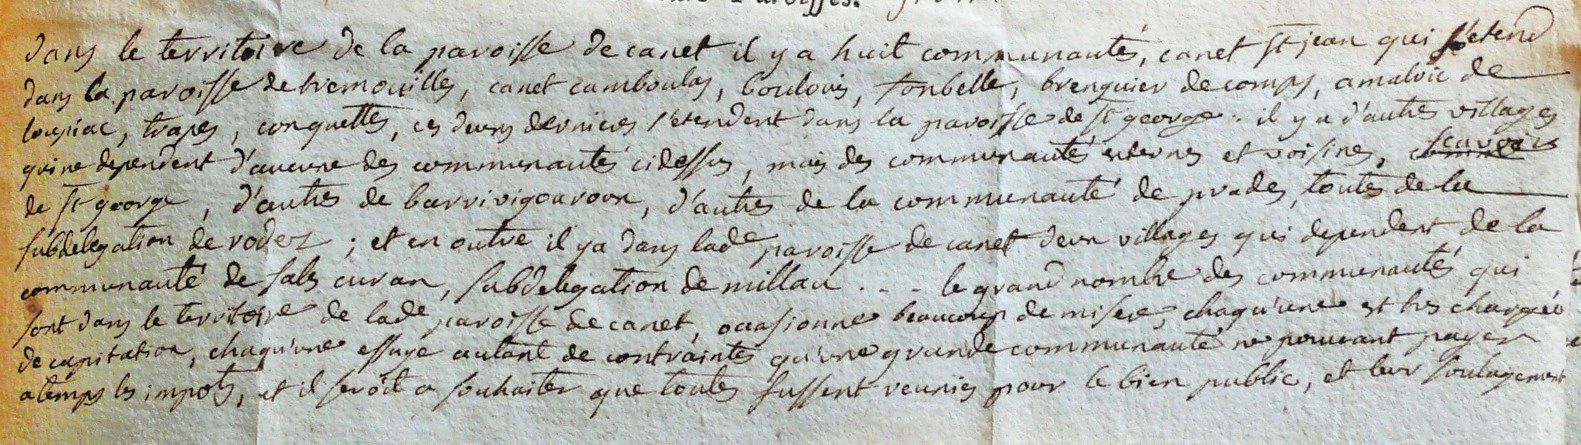 Paroisses.
dans le territoire de la paroisse de canet il y a huit communautés, canet st jean qui s'etend
dans la paroisse de tremouilles, canet camboulas, bouloüis, tonbelle, brenguier de comps, amalvic de
loupiac, trapes, conquettes, ces deux derniers s'etendent dans la paroisse de st george. il y a d'autres villages
qui ne dependent d'aucune des communautés cidessus, mais des communautés externes et voisines, scavoir
de st george, d'autres de barrivigouroux, d'autres de la communauté de prades, toutes de la
subdelegation de rodez ; et en outre il y a dans lade paroisse de canet deux villages qui dependent de la
communauté de sales curan, subdelegation de millau . . . le grand nombre des communautés qui
sont dans le territoire de lade paroisse de canet, ocasionne beaucoup de misere, chaqu'une est tres chargée
de capitation, chaqu'une essuye autant de contraintes qu'une grande communauté ne pouvant payer
a temps les impots, et il seroit a souhaiter que toutes fussent reunies pour le bien public, et leur soulagement